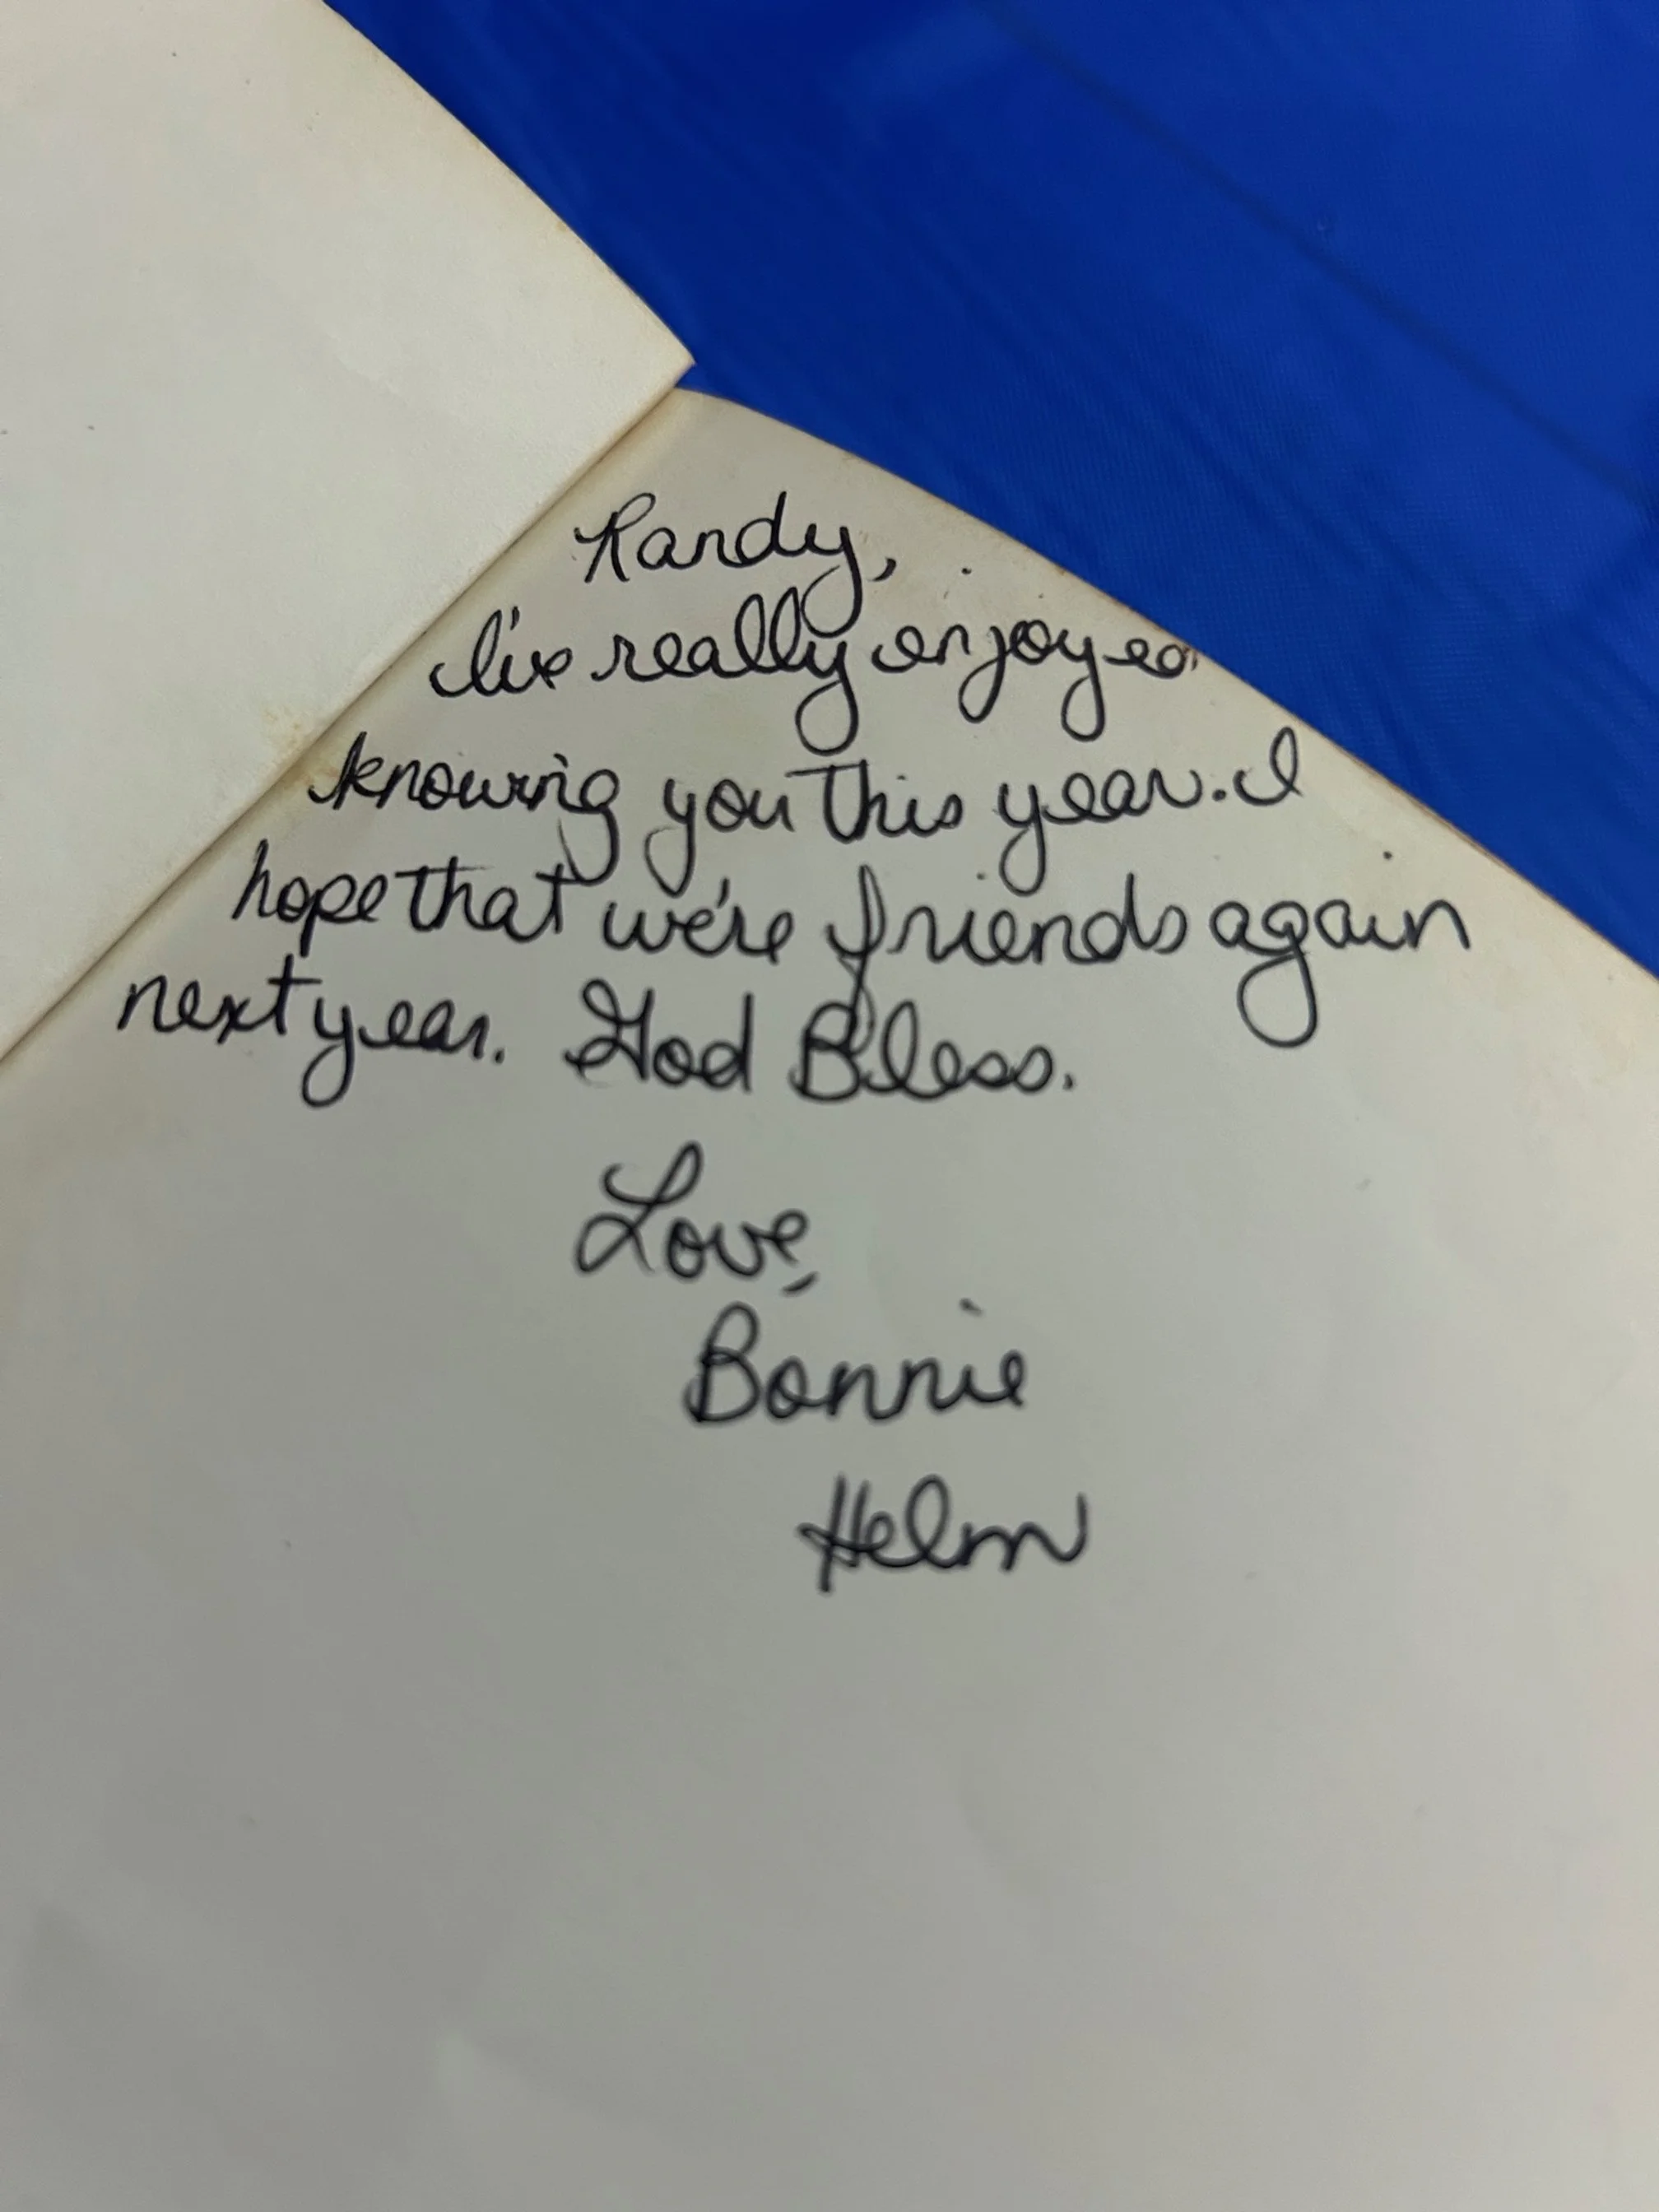 Randy,
I've really enjoyed
knowing you this year. I
hope that we're friends again
next year. God Bless.
Love,
Bonnie
Helm